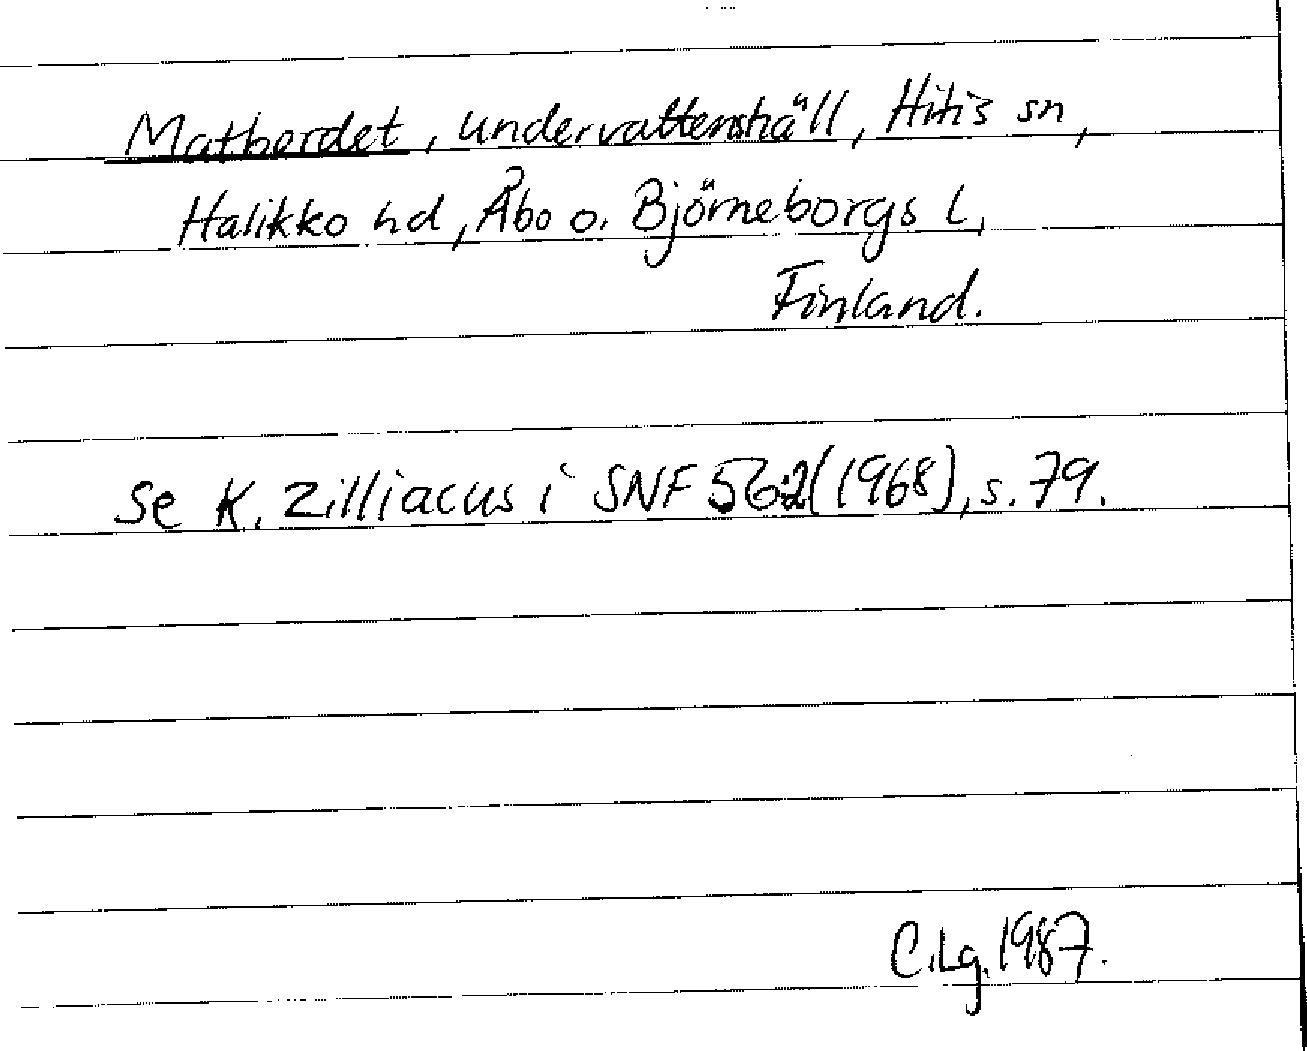 Matbordet, undervattenshäll, Hitis sn,
Halikko hd, Åbo o. Björneborgs l,
Finland.
Se K. Zilliacus i SNF 562(1968), s. 79.
C.Lg. 1987.